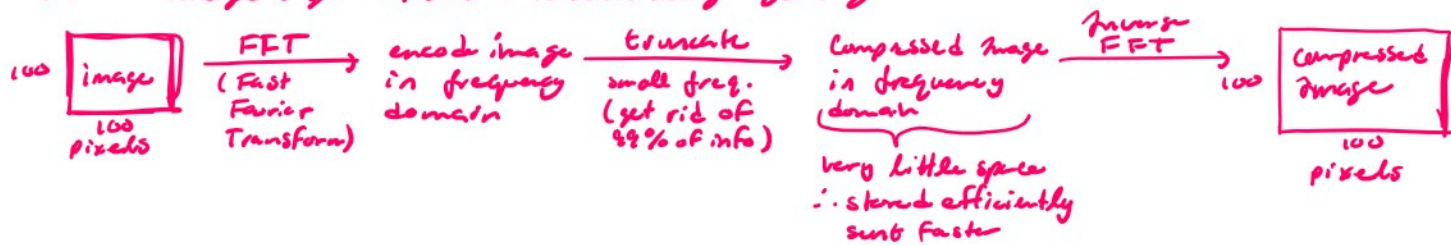 100
image
100
pixels
FFT
(Fast
Fourier
Transform)
encode image
in frequency
domain
truncate
small freq.
(get rid of
99% of info)
Compressed Image
in frequency
domain
very little space
∴ stored efficiently
sent faster
Inverse
FFT
100
compressed
Image
100
pixels